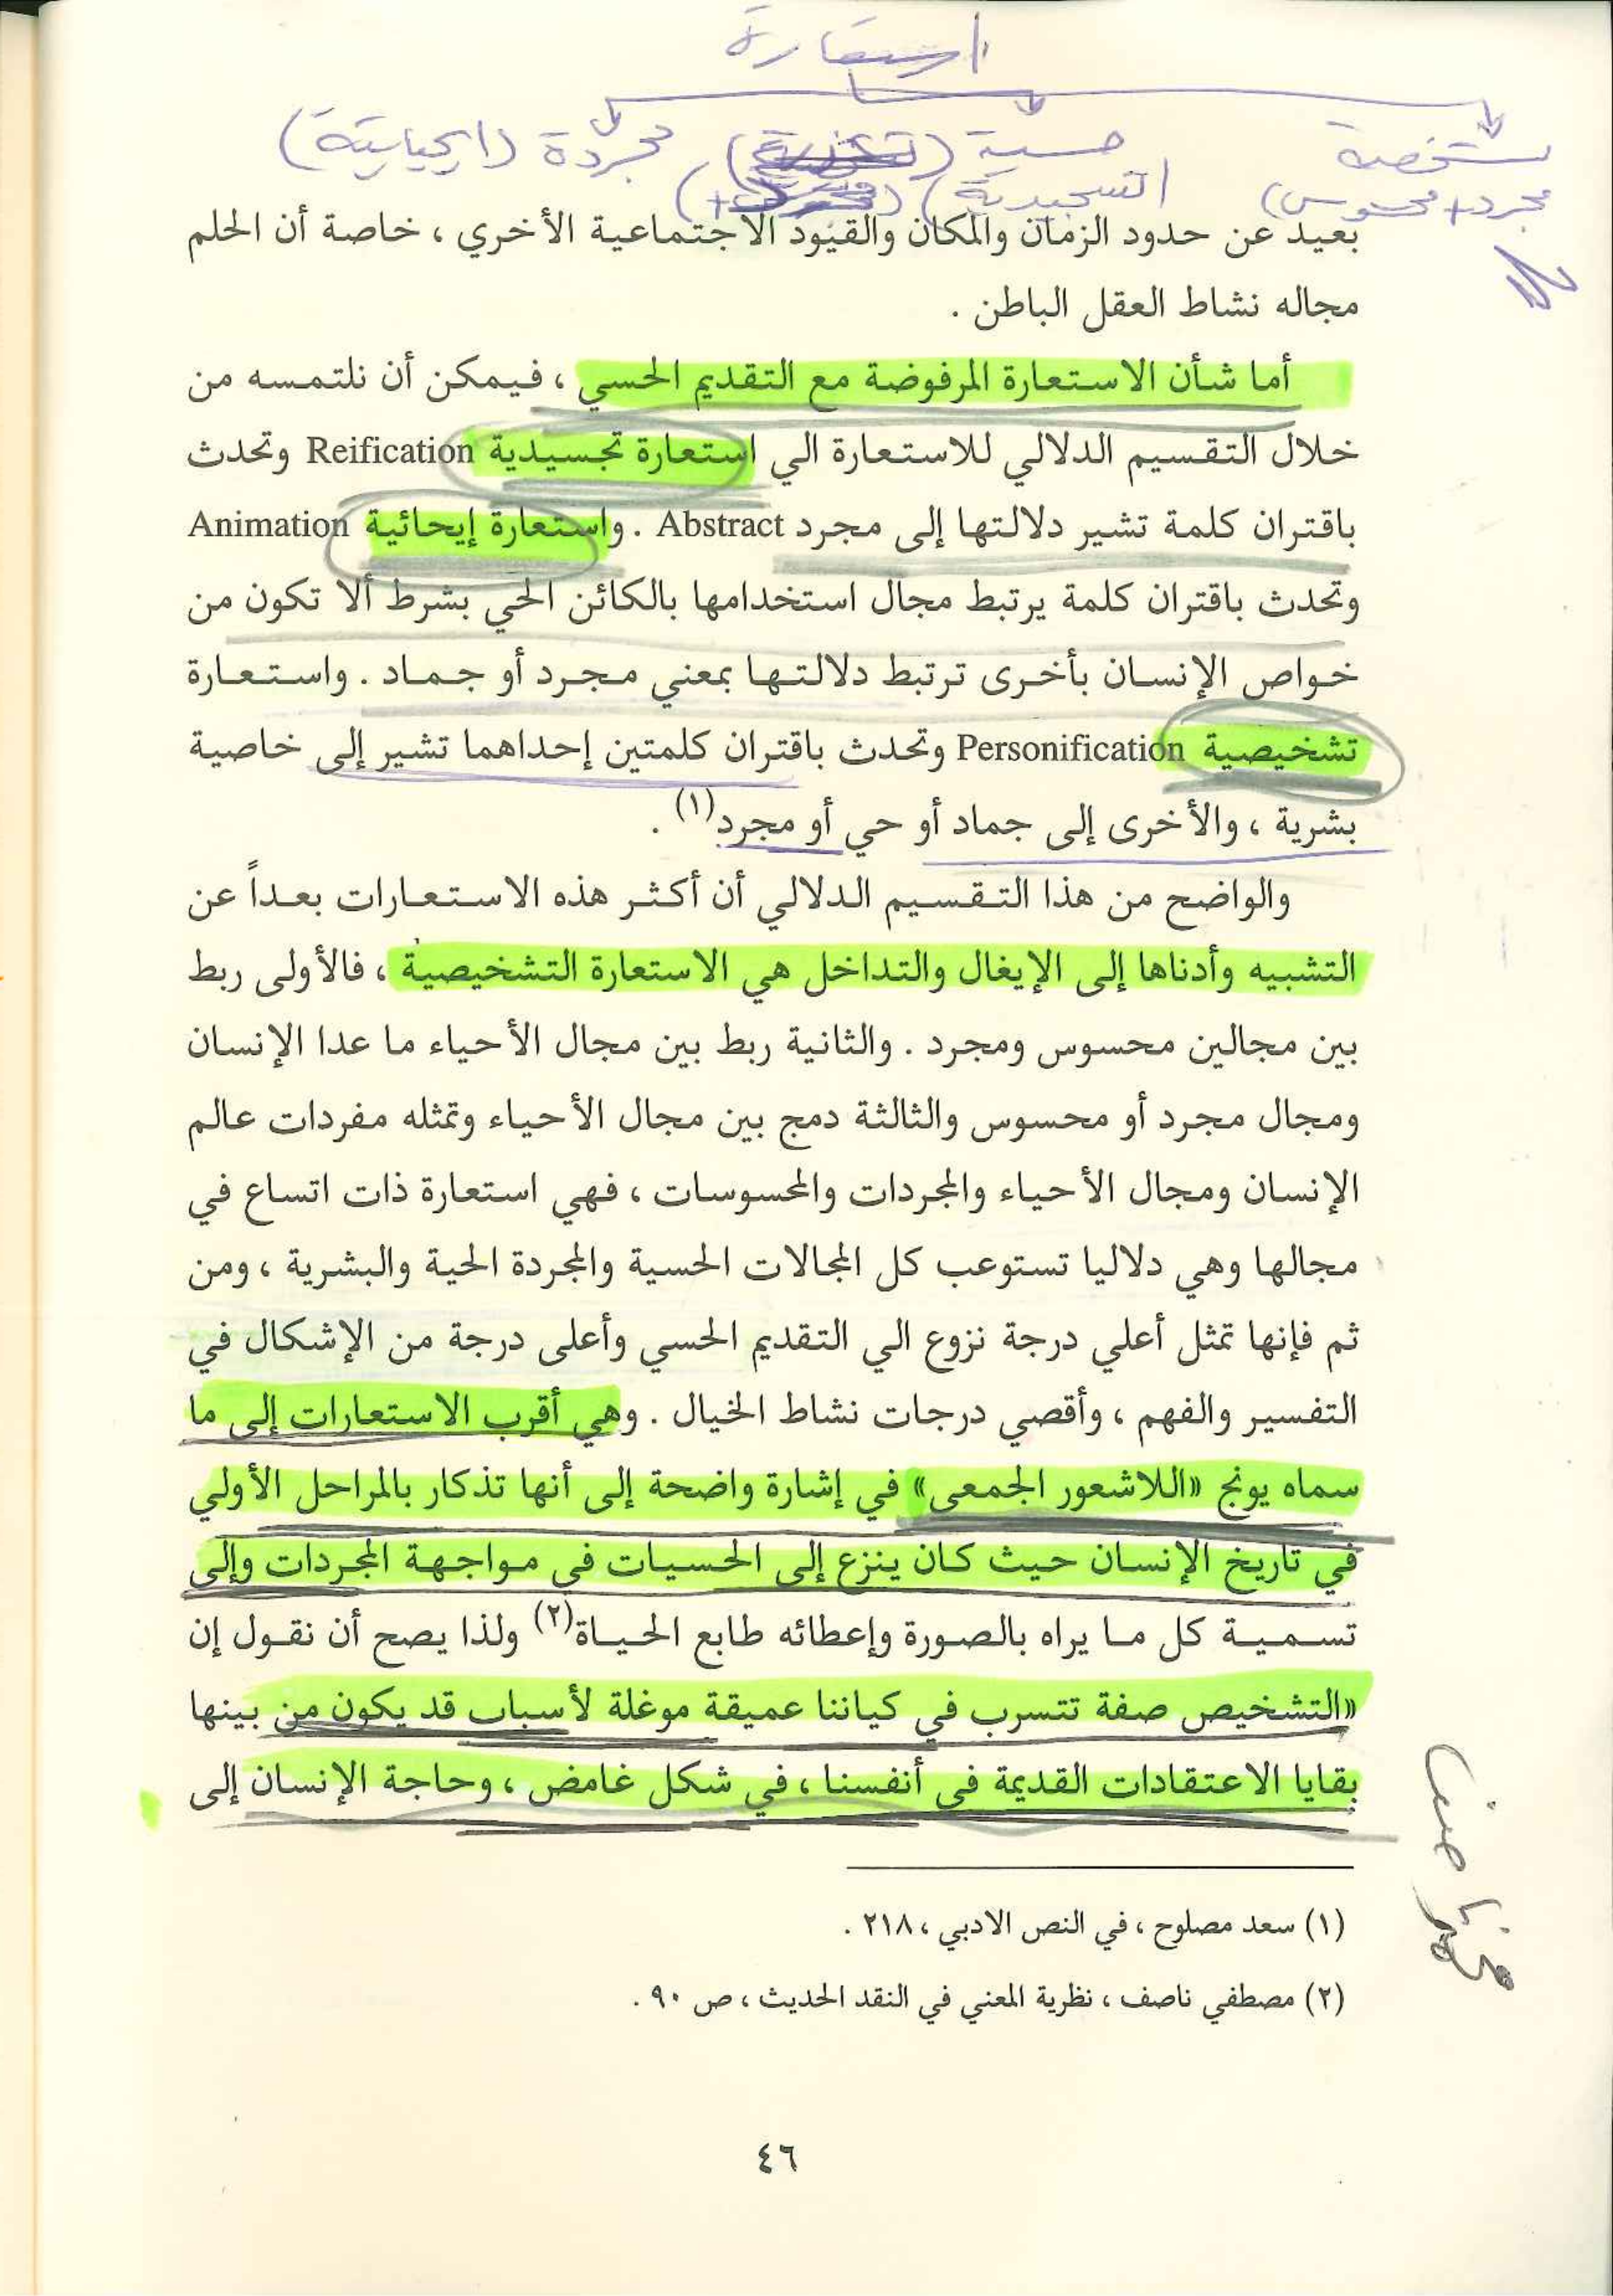 استعارة
تشخصية حسية مجردة (ايحيايية)
مجرد+محسوس) (التسجيدية)
بعيد عن حدود الزمان والمكان والقيود الاجتماعية الأخري ، خاصة أن الحلم
مجاله نشاط العقل الباطن .
أما شأن الاستعارة المرفوضة مع التقديم الحسي ، فيمكن أن نلتمسه من
خلال التقسيم الدلالي للاستعارة الي استعارة تجسيدية Reification وتحدث
باقتران كلمة تشير دلالتها إلى مجرد Abstract . واستعارة إيحائية Animation
وتحدث باقتران كلمة يرتبط مجال استخدامها بالكائن الحي بشرط ألا تكون من
خواص الإنسان بأخرى ترتبط دلالتها بمعني مجرد أو جماد . واستعارة
تشخيصية Personification وتحدث باقتران كلمتين إحداهما تشير إلى خاصية
بشرية ، والأخرى إلى جماد أو حي أو مجرد(١) .
والواضح من هذا التقسيم الدلالي أن أكثر هذه الاستعارات بعداً عن
التشبيه وأدناها إلى الإيغال والتداخل هي الاستعارة التشخيصية ، فالأولى ربط
بين مجالين محسوس ومجرد . والثانية ربط بين مجال الأحياء ما عدا الإنسان
ومجال مجرد أو محسوس والثالثة دمج بين مجال الأحياء وتمثله مفردات عالم
الإنسان ومجال الأحياء والمجردات والمحسوسات ، فهي استعارة ذات اتساع في
مجالها وهي دلاليا تستوعب كل المجالات الحسية والمجردة الحية والبشرية ، ومن
ثم فإنها تمثل أعلي درجة نزوع الي التقديم الحسي وأعلى درجة من الإشكال في
التفسير والفهم ، وأقصي درجات نشاط الخيال . وهي أقرب الاستعارات إلى ما
سماه يونج «اللاشعور الجمعى» في إشارة واضحة إلى أنها تذكار بالمراحل الأولي
في تاريخ الإنسان حيث كان ينزع إلى الحسيات في مواجهة المجردات وإلى
تسمية كل ما يراه بالصورة وإعطائه طابع الحياة(٢) ولذا يصح أن نقول إن
«التشخيص صفة تتسرب في كياننا عميقة موغلة لأسباب قد يكون من بينها
بقايا الاعتقادات القديمة في أنفسنا ، في شكل غامض ، وحاجة الإنسان إلى
(١) سعد مصلوح ، في النص الادبي ، ٢١٨ .
(٢) مصطفي ناصف ، نظرية المعني في النقد الحديث ، ص ٩٠ .
٤٦